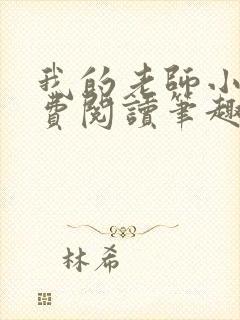 我的老師小
費閱讀筆趣
林希